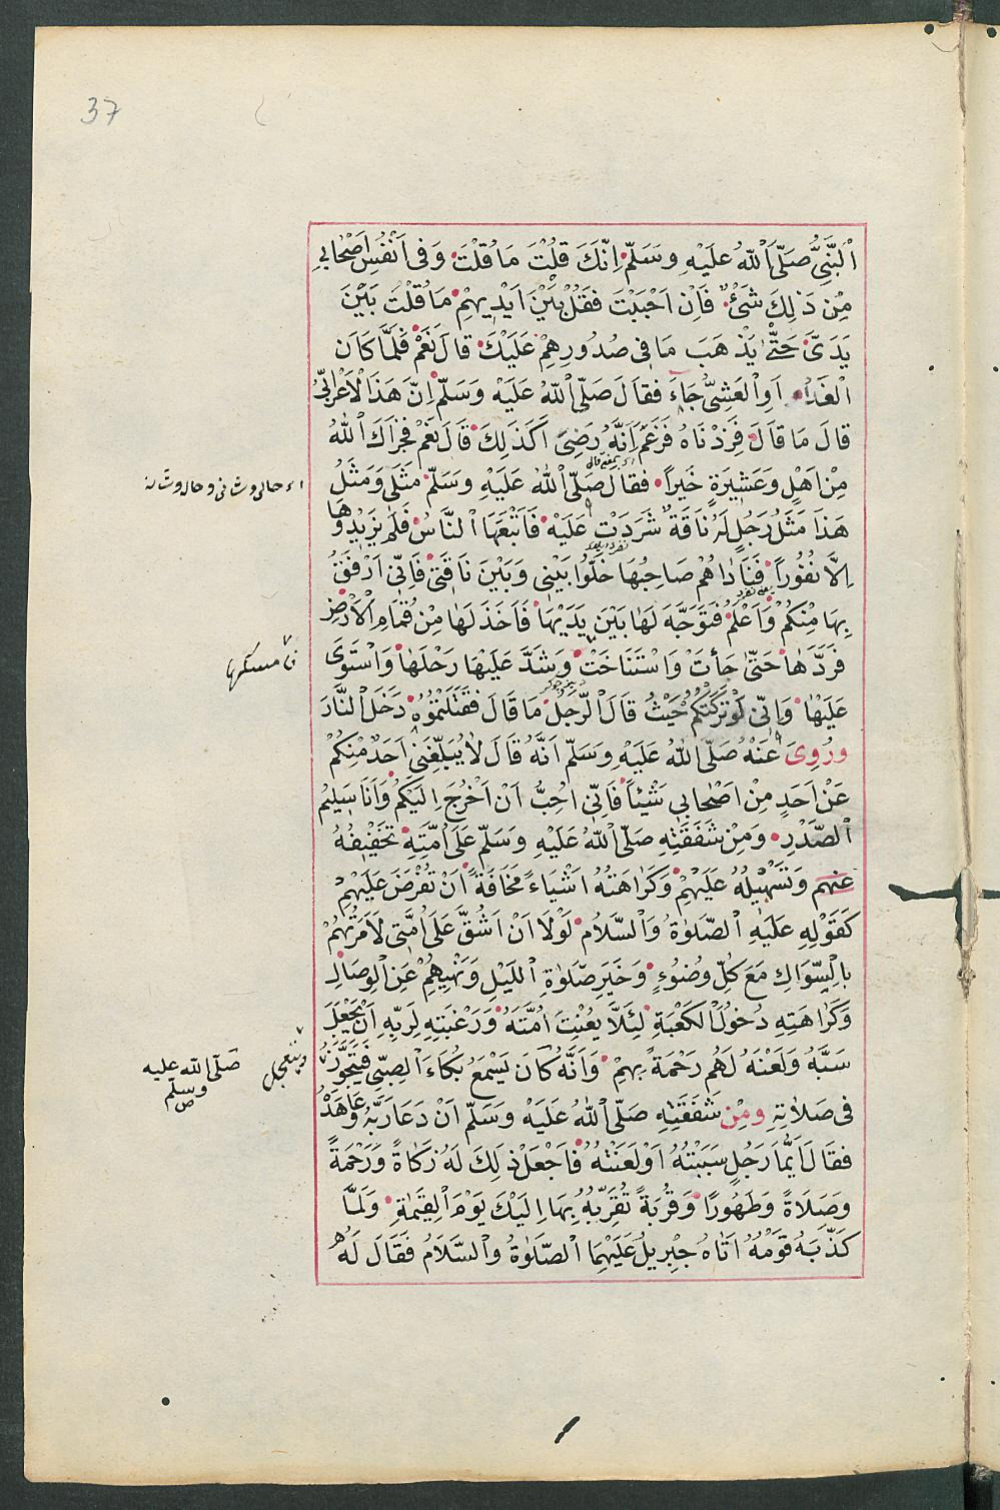 37
اَلنَّبِيُّ صَلَّى اللّٰهُ عَلَيْهِ وَسَلَّمَ اِنَّكَ قُلْتَ مَا قُلْتَ وَفِى اَنْفُسِ اَصْحَابِى
مِنْ ذَلِكَ شَىْءٌ فَاِنْ اَحْبَبْتَ فَقُلْ بَيْنَ اَيْدِيهِمْ مَا قُلْتَ بَيْنَ
يَدَىَّ حَتّٰى يَذْهَبَ مَا فِى صُدُورِهِمْ عَلَيْكَ قَالَ نَعَمْ فَلَمَّا كَانَ
الْغَدَاةُ اَوِ الْعَشِىُّ جَاءَ فَقَالَ صَلَّى اللّٰهُ عَلَيْهِ وَسَلَّمَ اِنَّ هَذَا الْاَعْرَابِىَّ
قَالَ مَا قَالَ فَزِدْنَاهُ فَزَعَمَ اَنَّهُ رَضِىَ اَكَذَلِكَ قَالَ نَعَمْ فَجَزَاكَ اللّٰهُ
مِنْ اَهْلٍ وَعَشِيرَةٍ خَيْرًا فَقَالَ صَلَّى اللّٰهُ عَلَيْهِ وَسَلَّمَ مَثَلِى وَمَثَلُ
هَذَا مَثَلُ رَجُلٍ لَهُ نَاقَةٌ شَرَدَتْ عَلَيْهِ فَاَتْبَعَهَا النَّاسُ فَلَمْ يَزِيدُوهَا
اِلَّا نُفُورًا فَنَادَاهُمْ صَاحِبُهَا خَلُّوا بَيْنِى وَبَيْنَ نَاقَتِى فَاِنِّى اَرْفَقُ
بِهَا مِنْكُمْ وَاَعْلَمُ فَتَوَجَّهَ لَهَا بَيْنَ يَدَيْهَا فَاَخَذَ لَهَا مِنْ قُمَامِ الْاَرْضِ
فَرَدَّهَا حَتّٰى جَاءَتْ وَاسْتَنَاخَتْ وَشَدَّ عَلَيْهَا رَحْلَهَا وَاسْتَوَى
عَلَيْهَا وَاِنِّى لَوْ تَرَكْتُكُمْ حَيْثُ قَالَ الرَّجُلُ مَا قَالَ فَقَتَلْتُمُوهُ دَخَلَ النَّارَ
وَرُوِىَ عَنْهُ صَلَّى اللّٰهُ عَلَيْهِ وَسَلَّمَ اَنَّهُ قَالَ لَا يُبَلِّغَنِى اَحَدٌ مِنْكُمْ
عَنْ اَحَدٍ مِنْ اَصْحَابِى شَيْئًا فَاِنِّى اُحِبُّ اَنْ اَخْرُجَ اِلَيْكُمْ وَاَنَا سَلِيمُ
الصَّدْرِ وَمِنْ شَفَقَتِهِ صَلَّى اللّٰهُ عَلَيْهِ وَسَلَّمَ عَلَى اُمَّتِهِ تَخْفِيفُهُ
عَنْهُم وَتَسْهِيلُهُ عَلَيْهِمْ وَكَرَاهَتُهُ اَشْيَاءً مَخَافَةَ اَنْ تُفْرَضَ عَلَيْهِمْ
كَقَوْلِهِ عَلَيْهِ الصَّلٰوةُ وَالسَّلَامُ لَوْلَا اَنْ اَشُقَّ عَلَى اُمَّتِى لَاَمَرْتُهُمْ
بِالسِّوَاكِ مَعَ كُلِّ وُضُوءٍ وَخَبَرِ صَلٰوةِ اللَّيْلِ وَنَهْيِهِمْ عَنِ الْوِصَالِ
وَكَرَاهَتِهِ دُخُولَ الْكَعْبَةِ لِئَلَّا يُعْنِتَ اُمَّتَهُ وَرَغْبَتِهِ لِرَبِّهِ اَنْ يَجْعَلَ
سَبَّهُ وَلَعْنَهُ لَهُمْ رَحْمَةً بِهِمْ وَاَنَّهُ كَانَ يَسْمَعُ بُكَاءَ الصَّبِىِّ فَيَتَجَوَّزُ
فِى صَلَاتِهِ وَمِنْ شَفَقَتِهِ صَلَّى اللّٰهُ عَلَيْهِ وَسَلَّمَ اَنْ دَعَا رَبَّهُ وَعَاهَدَهُ
فَقَالَ اَيُّمَا رَجُلٍ سَبَبْتُهُ اَوْ لَعَنْتُهُ فَاجْعَلْ ذَلِكَ لَهُ زَكَاةً وَرَحْمَةً
وَصَلَاةً وَطَهُورًا وَقُرْبَةً تُقَرِّبُهُ بِهَا اِلَيْكَ يَوْمَ الْقِيٰمَةِ وَلَمَّا
كَذَّبَهُ قَوْمُهُ اَتَاهُ جِبْرِيلُ عَلَيْهِمَا الصَّلٰوةُ وَالسَّلَامُ فَقَالَ لَهُ
اى حالى وشانى وحاله وشانه
صلّى اللّه عليه
وسلم